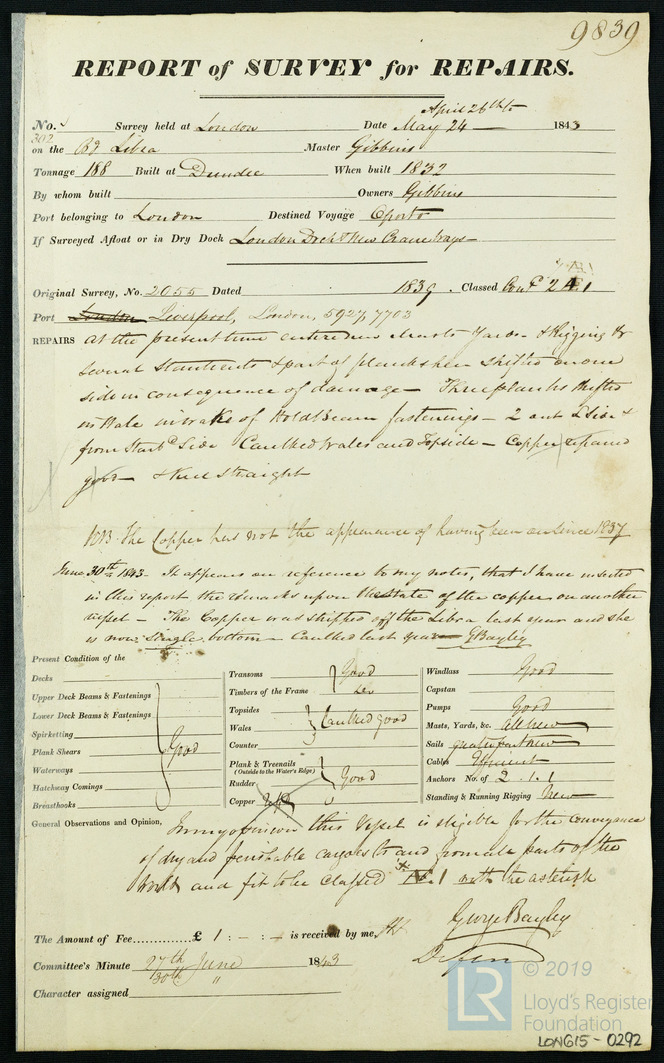 9839
REPORT of SURVEY for REPAIRS.
April 26th to
No. 302 Survey held at London Date May 24 1843
on the Bg Libra Master Gibbins
Tonnage 188 Built at Dundee When built 1832
By whom built Owners Gibbins
Port belonging to London Destined Voyage Oporto
If Surveyed Afloat or in Dry Dock London Dock & New Crane Ways
Original Survey, No. 2055 Dated 1839. Classed
Port London Liverpool, London, 5927, 7703
REPAIRS At the present time entire new Masts Yards & Rigging &
several Stantients & part of plansheer shifted on one
side in consequence of damage - Three planks shifted
in Wale in wake of Hold beam fastenings - 2 out Side &
from Starbd Side Caulked Wales and Topside - Copper repaired
good - & Keel Straight
NB. The Copper has not the appearance of having been on since 1837
June 30th 1843 - It appears on reference to my notes, that I have inserted
in this report the remarks upon the state of the copper on another
vessel - The Copper was stripped off the Libra last year and she
is now single bottom - Caulked last year G Bayley
Present Condition of the
Decks
Upper Deck Beams & Fastenings
Lower Deck Beams & Fastenings
Spirketting
Plank Shears
Waterways
Hatchway Comings
Breasthooks
Good
Transoms Good
Timbers of the Frame Do
Topsides
Wales Caulked good
Counter
Plank & Treenails
(Outside to the Water's Edge)
Rudder Good
Copper
Windlass Good
Capstan
Pumps Good
Masts, Yards, &c. All new
Sails greater part new
Cables Efficient
Anchors No. of 2.1.1
Standing & Running Rigging New
General Observations and Opinion, In my opinion this Vessel is eligible for the conveyance
of dry and perishable cargoes to and from all parts of the
World and fit to be Classed Æ 1 with the asterisk
George Bayley
The Amount of Fee £ 1 : - : - is received by me,
Committee's Minute 27th June 1843
30th "
Character assigned
© 2019
LR
Lloyd's Register
Foundation
LON615-0292